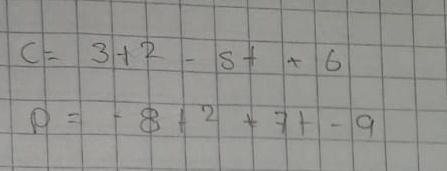 C = 3t² - 5t + 6
p = - 8t² + 7t - 9